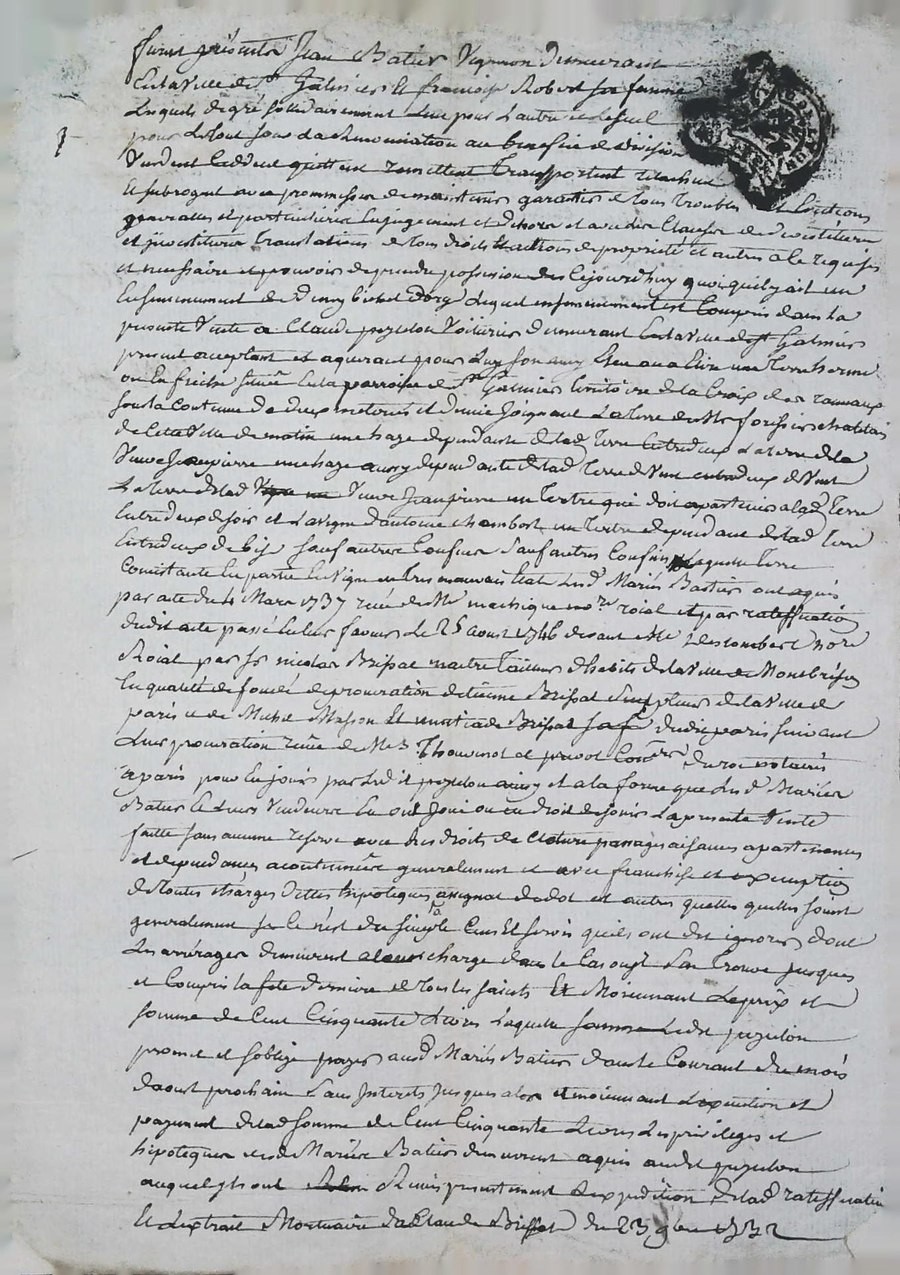 furent présents Jean Batier Vigneron demeurant
en la Ville de St Galmier et françoise Robert sa femme
Lesquels de gré solidairement L'un pour L'autre et Le seul
pour Le tout sous La renonciation au benefice de division
Vendent Ceddent quittent remettent transportent relachent
Et subrogent avec prommesse de maintenir garantir de tous troubles et Evictions
generalles et particulieres En jugement et dehors et avec Clauses de devestiture
et investiture translations de tous droits Et actions de proprieté et autres a le requises
et necessaire et pouvoir de prendre possession des Cejourdhuy quoi quil y ait un
Ensemencement de bichet d'orge Lequel ensemencement est Compris dans la
presente Vente a Claude pozelon Voiturier demeurant En la Ville de St Galmier
present acceptant et aquerant pour Luy son amy Elu ou a Elire une terre herme
ou En friche située En la parroisse de St Galmier territoire de la Croix des rameaux
sous la Contenue de deux meterées et demie Joignant La terre de Mr forissier chatelain
de Cette Ville de matin une haye dependante de lad. terre Entredeux La terre de la
Veuve Jeanpierre une haye aussy dependante de lad terre de Vent entredeux de Vent
La terre de lad Veuve Jeanpierre un tertre qui doit apartenir a lad terre
Entredeux de soir et La vigne d'antoine chambort un tertre dependant de lad terre
Entredeux de bise sauf autres Confins sauf autres Confins Laquelle terre
Consistante En partie En vigne en tres mauvais Etat Lesd. Mariés Batier ont aquis
par acte du 4 Mars 1737 reçu de Me nore roial et par ratiffication
dudit acte passé En leur faveur Le 25 aout 1746 devant Me nore
Roial par Sr nicolas Brissat maitre tailleur d'habits de la Ville de Montbrison
En qualité de fondé de procuration d'etienne Brissat de la Ville de
paris et de Michel Masson Et Brissat sa fe dudit paris suivant
Leur procuration reçue de Mes Thouvenot et prevot Coners du roi notaires
a paris pour En jouir par Ledit pozelon ainsy et a la forme que Lesd. Mariés
Batier et Leurs Vendeurs En ont Joui ou eu droit de jouir La presente Vente
faitte sans aucune reserve avec Les droits de Cloture passages aisances apartenances
et dependances acoutumées generalement et avec franchise et exemption
de toutes charges dettes hipoteques assignat de dot et autres quelles quelles soient
generalement Si Ce n'est du simple Cens Et servis qu'ils ont dit ignorer dont
Les arrérages demeurent a Leur charge dans le Cas ou il S'en trouve jusques
et Compris La fete derniere de Tous les saints Et Moienant Le prix et
somme de Cent Cinquante Livres Laquelle somme Ledit pozelon
promet et s'oblige payer auxd Mariés Batier dans le Courant du mois
d'aout prochain Sans Interets Jusques alors et moiennant L'execution et
payement de lad somme de Cent Cinquante Livres Les privileges et
hipoteques desd Mariés Batier demeurent aquis audit pozelon
auquel ils ont Remis presentement L'expedition de lad ratiffication
Et L'extrait Mortuaire de Claude Brissat du 23 9bre 1732